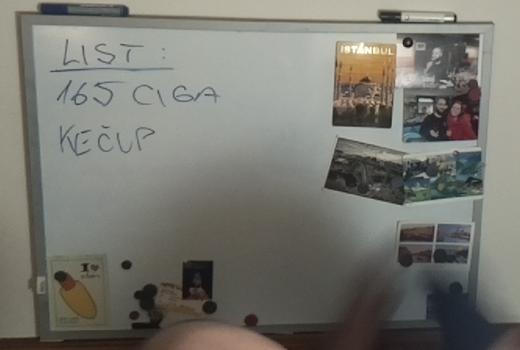 LIST:
165 CIGA
KEČUP
ISTANBUL
I